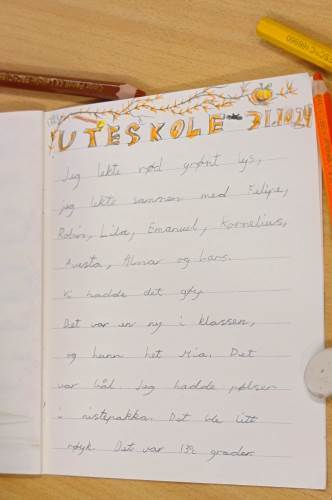 UTESKOLE 31.10.24
Jeg lekte rød grønt lys,
jeg lekte sammen med Felipe,
Robin, Lila, Emanuel, Kornelius,
Avesta, Almar og Lars.
Vi hadde det gøy
Det var en ny i klassen,
og hunn het Mia. Det
var bål Jeg hadde pølser
i nistepakka. Det ble litt
røyk. Det var 13½ grader